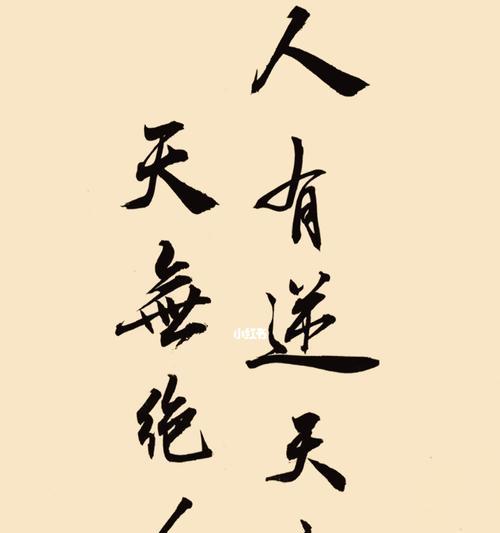 人有逆天
天無絕人
小红书